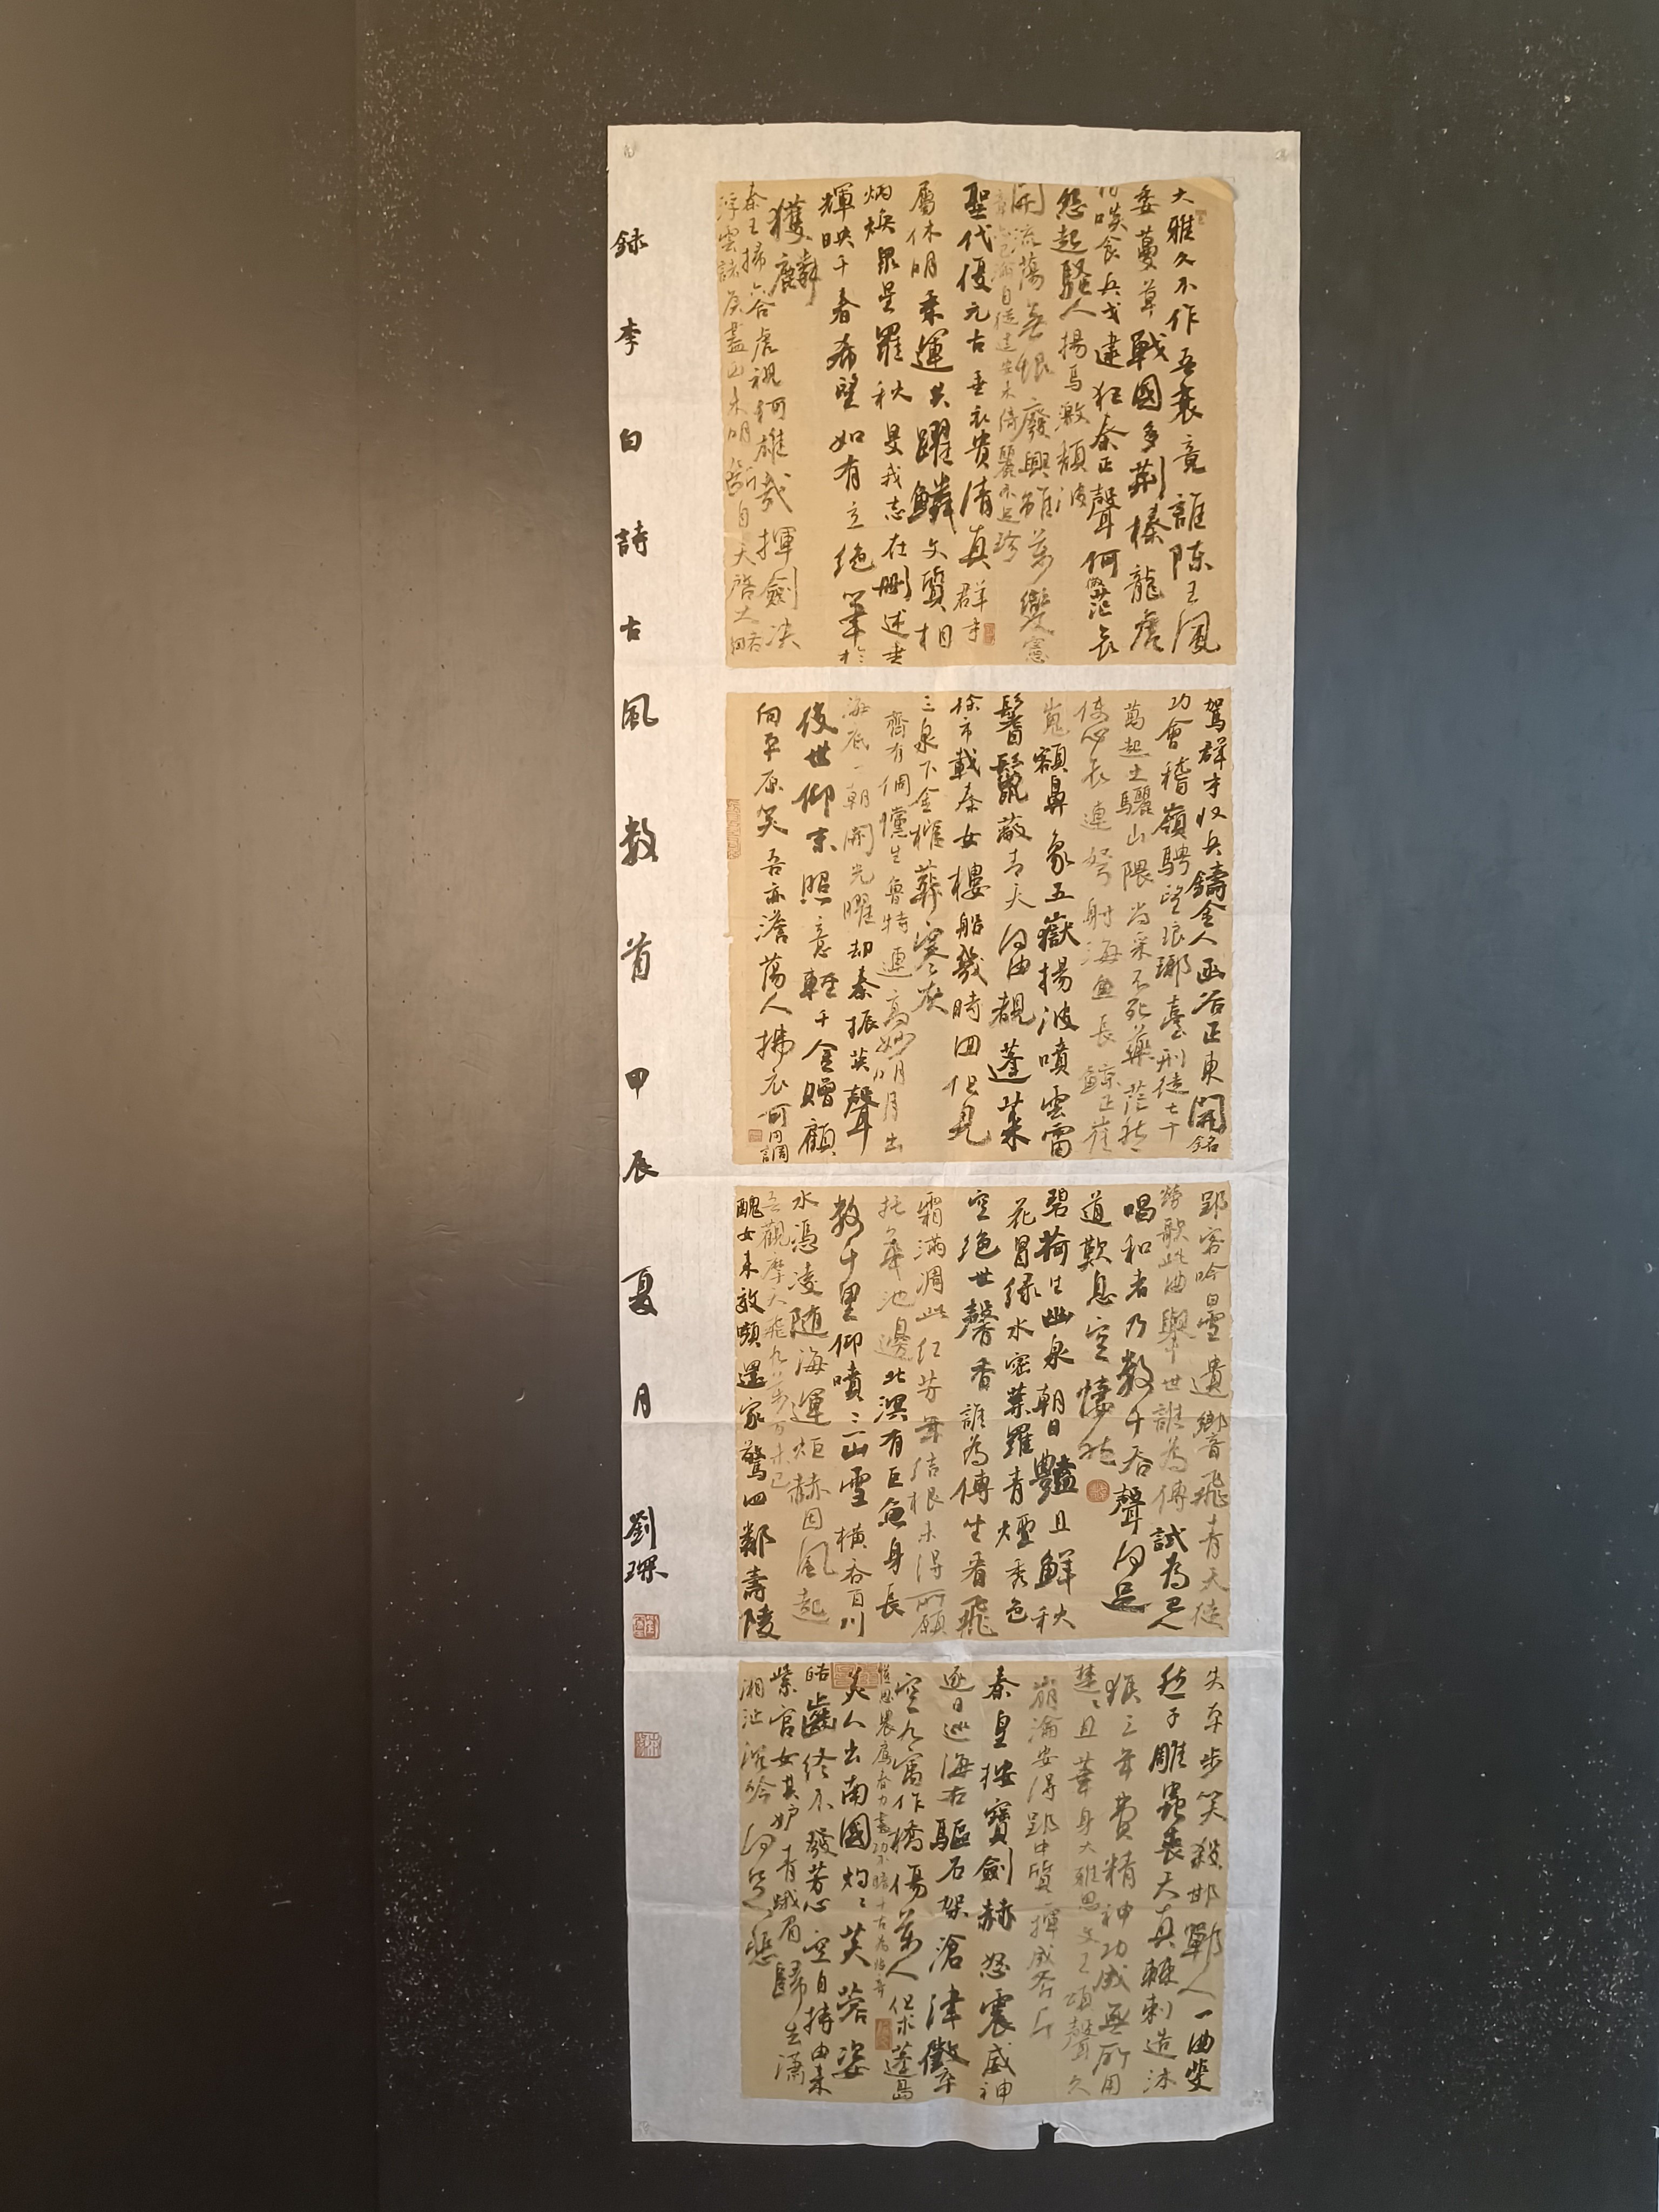 大雅久不作吾衰竟誰陳王風
委蔓草戰國多荊榛龍虎
相啖食兵戈逮狂秦正聲何微茫哀
怨起騷人揚馬激頹波
開流蕩無垠廢興雖萬變憲
章亦已淪自從建安來綺麗不足珍
聖代復元古垂衣貴清真群才
屬休明乘運共躍鱗文質相
炳煥眾星羅秋旻我志在刪述垂
輝映千春希聖如有立絕筆於
獲麟
秦王掃六合虎視何雄哉揮劍決
浮雲諸侯盡西來明斷自天啟大略
駕群才收兵鑄金人函谷正東開銘
功會稽嶺騁望琅琊臺刑徒七十
萬起土驪山隈尚采不死藥茫然
使心哀連弩射海魚長鯨正崔
嵬額鼻象五嶽揚波噴雲雷
鬐鬣蔽青天何由覩蓬萊
徐市載秦女樓船幾時回但見
三泉下金棺葬寒灰
齊有倜儻生魯特連高妙明月出
海底一朝開光曜却秦振英聲
後世仰末照意輕千金贈顧
向平原笑吾亦澹蕩人拂衣可同調
郢客吟白雪遺響飛青天徒
勞歌此曲舉世誰為傳試為巴人
唱和者乃數千吞聲何足
道歎息空悽然
碧荷生幽泉朝日豔且鮮秋
花冒綠水密葉羅青煙秀色
空絕世馨香誰為傳坐看飛
霜滿凋此紅芳年結根未得所願
托華池邊北溟有巨魚身長
數千里仰噴三山雪橫吞百川
水憑凌隨海運炟赫因風起
吾觀摩天飛九萬方未已
醜女來效顰還家驚四鄰壽陵
失本步笑殺邯鄲人一曲斐
然子雕蟲喪天真棘刺造沐
猴三年費精神功成無所用
楚楚且華身大雅思文王頌聲久
崩淪安得郢中質一揮成斧斤
秦皇按寶劍赫怒震威神
逐日巡海右驅石架滄津徵卒
空九寓作橋傷萬人但求蓬島
豈思農扈春力盡功不贍千古為悲辛
美人出南國灼灼芙蓉姿
皓齒終不發芳心空自持由來
紫宮女共妒青蛾眉歸去瀟
湘沚沉吟何足悲
録李白詩古風數首甲辰夏月劉琛